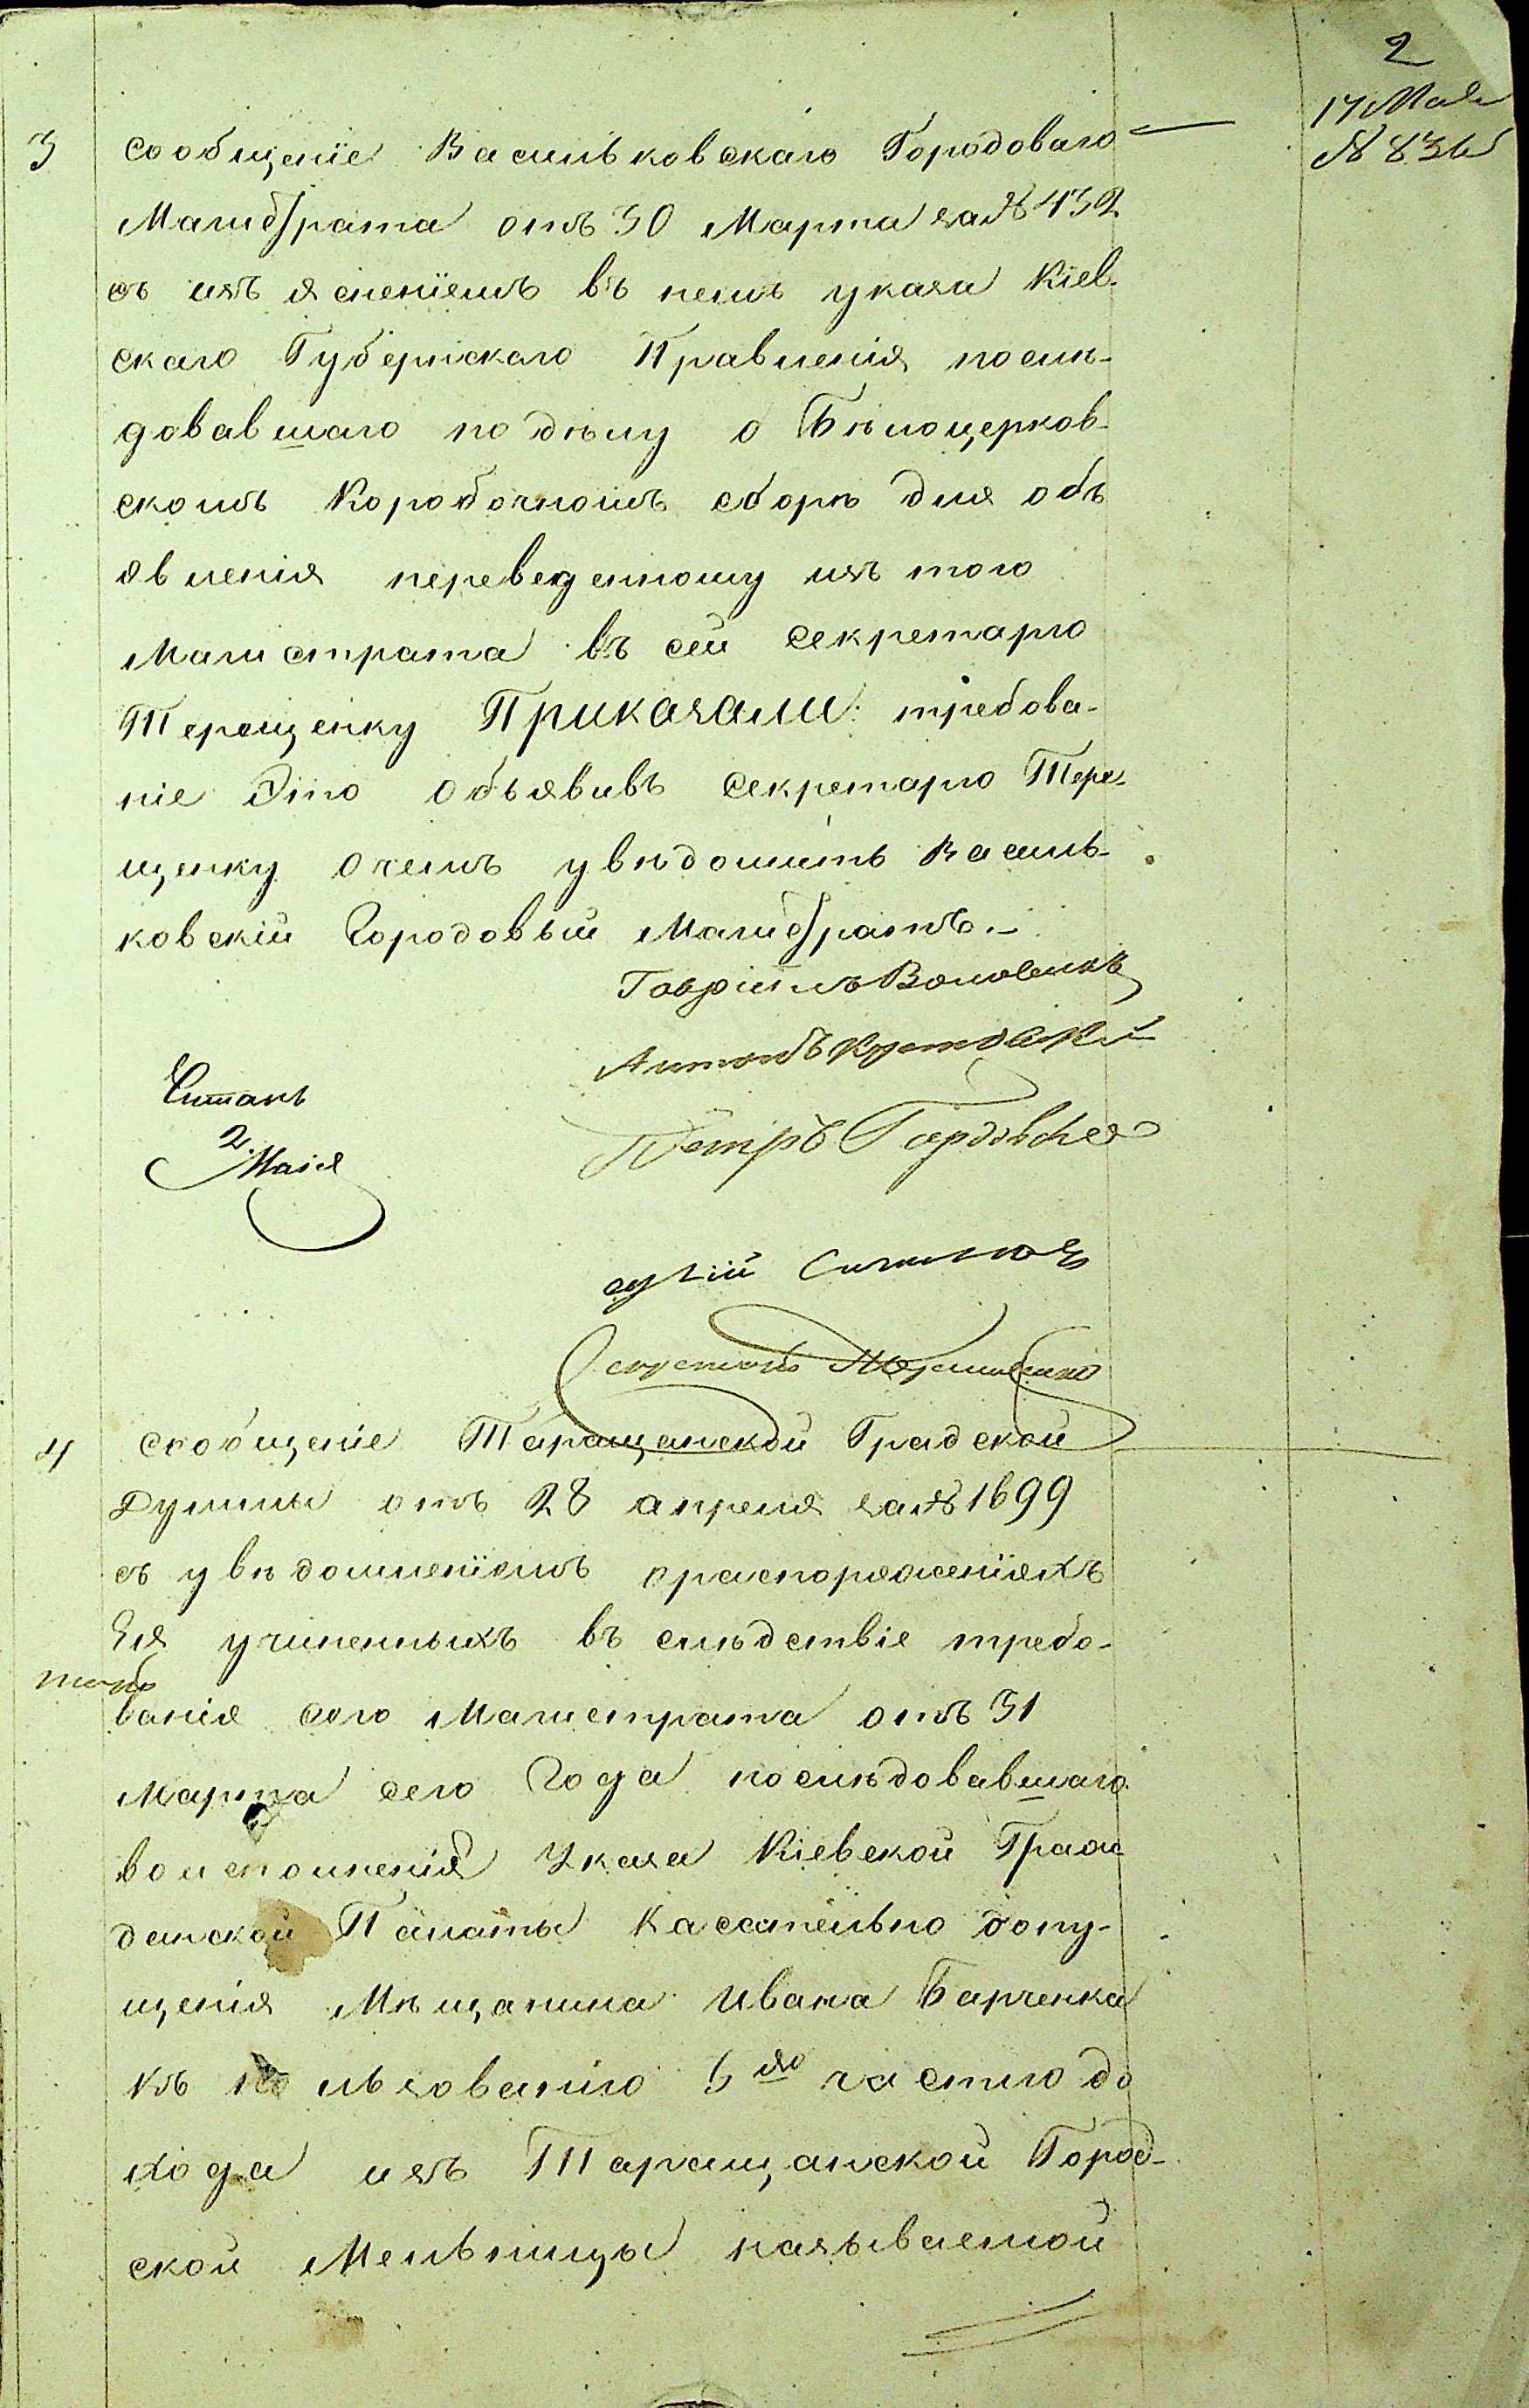 2
17 Мая
№ 836
3 сообщеніе Васильковскаго Городоваго
Магистрата отъ 30 Марта за № 432
съ изъясненіемъ въ немъ указа Кіев-
скаго Губернскаго Правленія послѣ-
довавшаго по дѣлу о Бѣлоцерков-
скомъ Коробочномъ сборѣ для объ
явленія переведенному изъ того
Магистрата въ сей Секретарю
Терещенку Приказали: требова-
ніе Это Объявивъ Секретарю Тере-
щенку Очемъ увѣдомить Василь-
ковскій Городовый Магистратъ.–
Гавріилъ
Антонъ
Читанъ
2 Маія
Петръ
Секретарь Терещенко
4 сообщеніе Таращанской Градской
Думмы отъ 28 апреля за № 1699
съ увѣдомленіемъ ораспоряженіяхъ
Ея учиненныхъ въ слѣдствіе требо-
ванія сего Магистрата отъ 31
Марта сего Года послѣдовавшаго
воисполненія Указа Кіевской Граж
данской Палаты Касательно допу-
щенія Мѣщанина Ивана Барченка
къ пользованію 6 ю частию до
хода изъ Таращанской Город-
ской Мельницы называемой